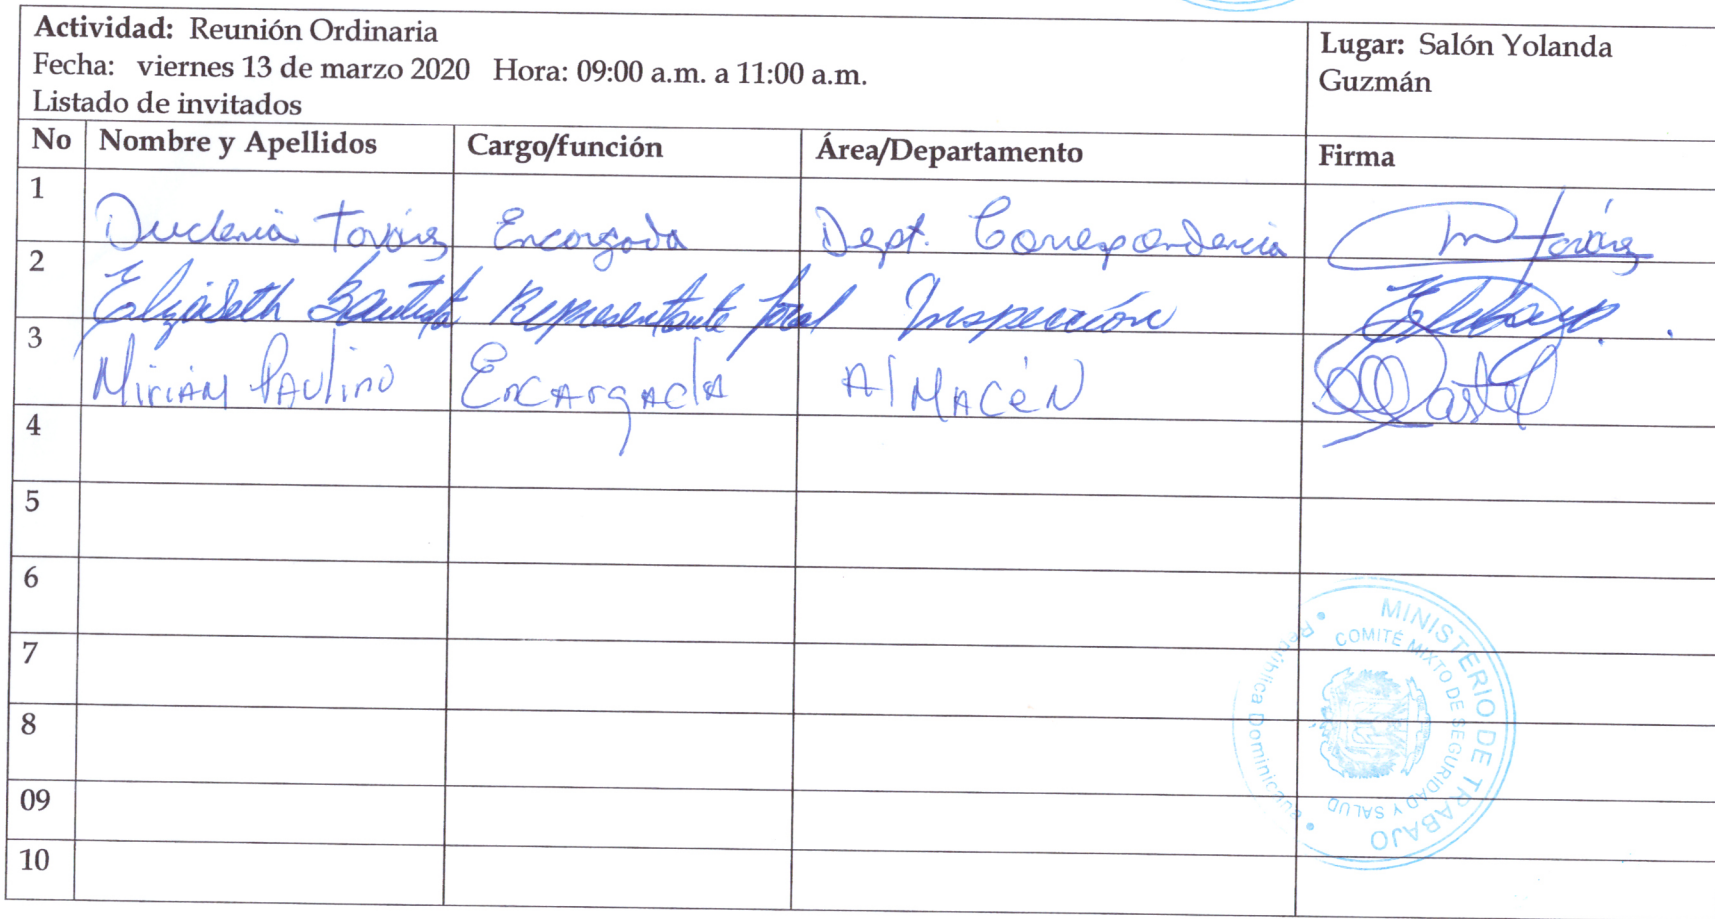 Actividad: Reunión Ordinaria
Fecha: viernes 13 de marzo 2020 Hora: 09:00 a.m. a 11:00 a.m.
Listado de invitados
Lugar: Salón Yolanda
Guzmán
No Nombre y Apellidos Cargo/función Área/Departamento Firma
1 Encargada Dept. Correspondencia
2 Elizabeth Bautista Representante Inspección
3 Miriam Paulino Encargada Almacén
4
5
6
7
8
09
10
MINISTERIO DE TRABAJO
COMITÉ MIXTO DE SEGURIDAD Y SALUD
• República Dominicana •